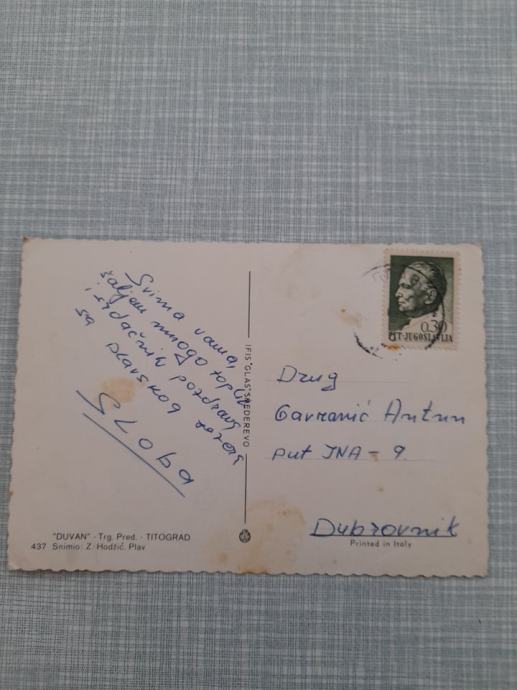 Svima vama,
šaljem mnogo toplih
i srdačnih pozdrava
sa plavskog jezera
SLOBA
IFIS "GLAS" SMEDEREVO
0.30
PTT-JUGOSLAVIJA
Drug
Gavranić Antun
put JNA - 9
Dubrovnik
Printed in Italy
"DUVAN" - Trg. Pred. - TITOGRAD
437 Snimio: Z. Hodžić, Plav